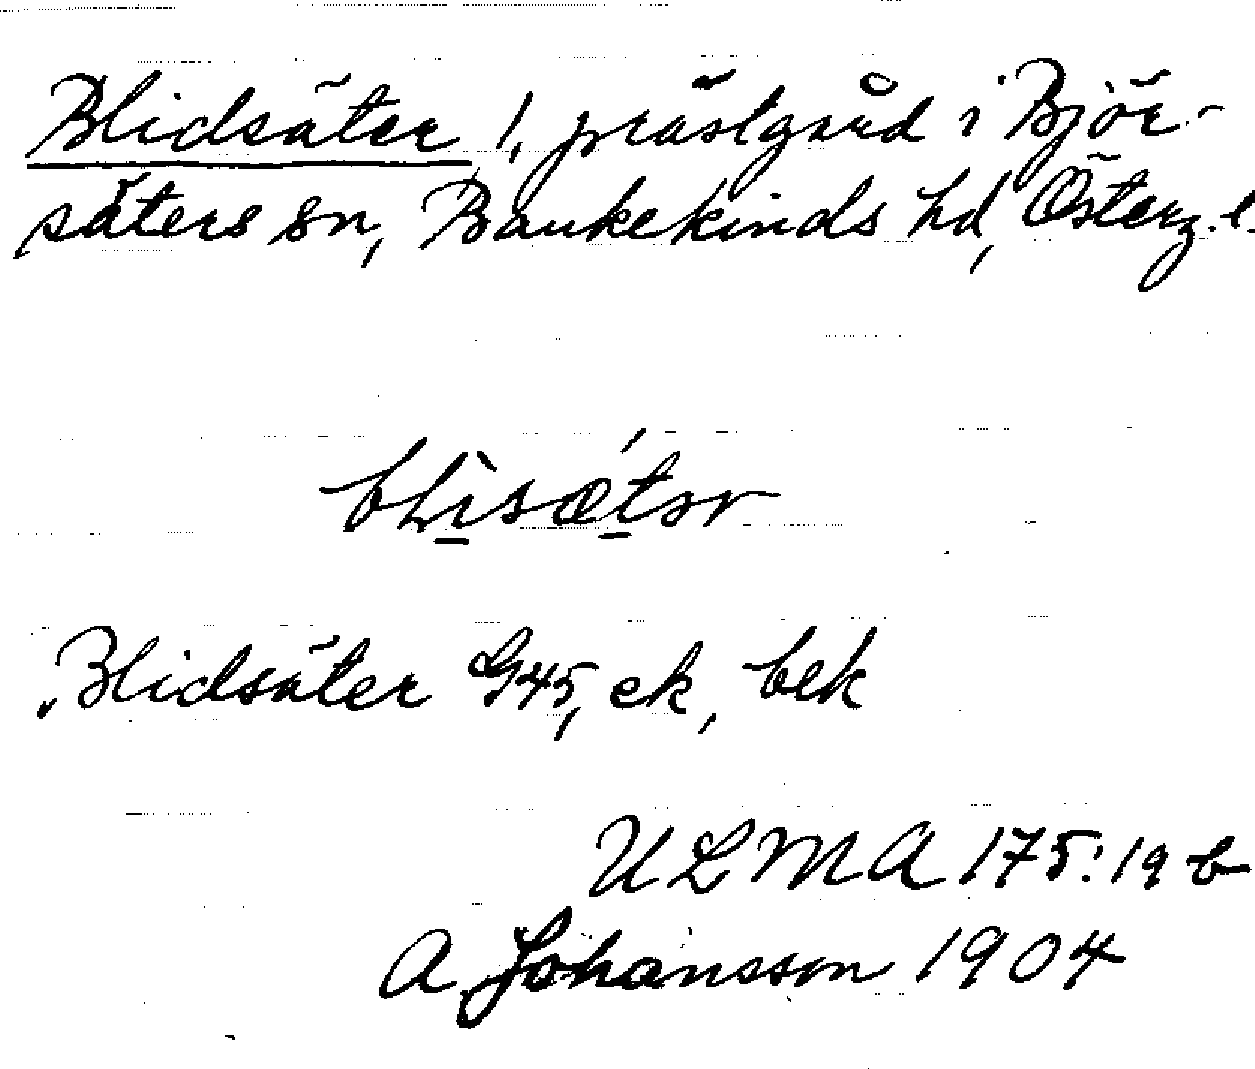 Blidsäter 1, prästgård i Björ-
säters sn, Bankekinds hd, Österg. l.
Blidsäter G45, ek, bek
ULMA 175:19 b
A. Johansson 1904